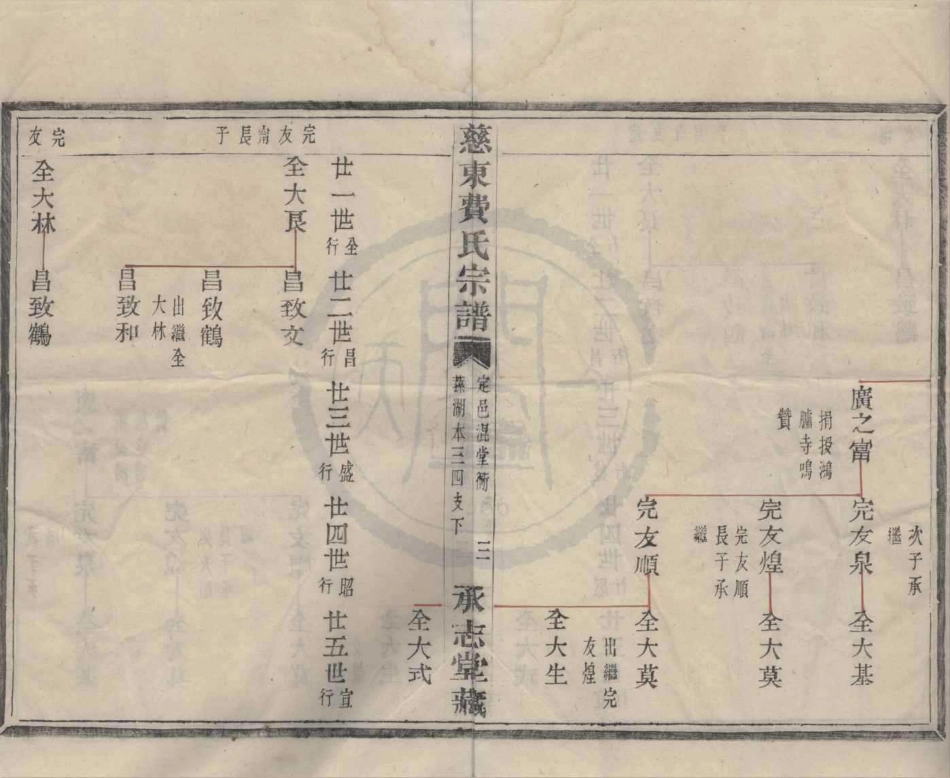 廣之甯
捐授鴻
臚寺鳴
贊
完友泉
次子承
繼
全大基
完友煌
完友順
長子承
繼
全大莫
完友順
全大莫
出繼完
友煌
全大生
慈東費氏宗譜
定邑混堂衖
蓀湖本三四支下
三
承志堂藏
全大式
廿一世全行
廿二世昌行
廿三世盛行
廿四世昭行
廿五世宜行
完友甯長子
全大良
昌致文
昌致鶴
出繼全
大林
昌致和
完友
全大林
昌致鶴